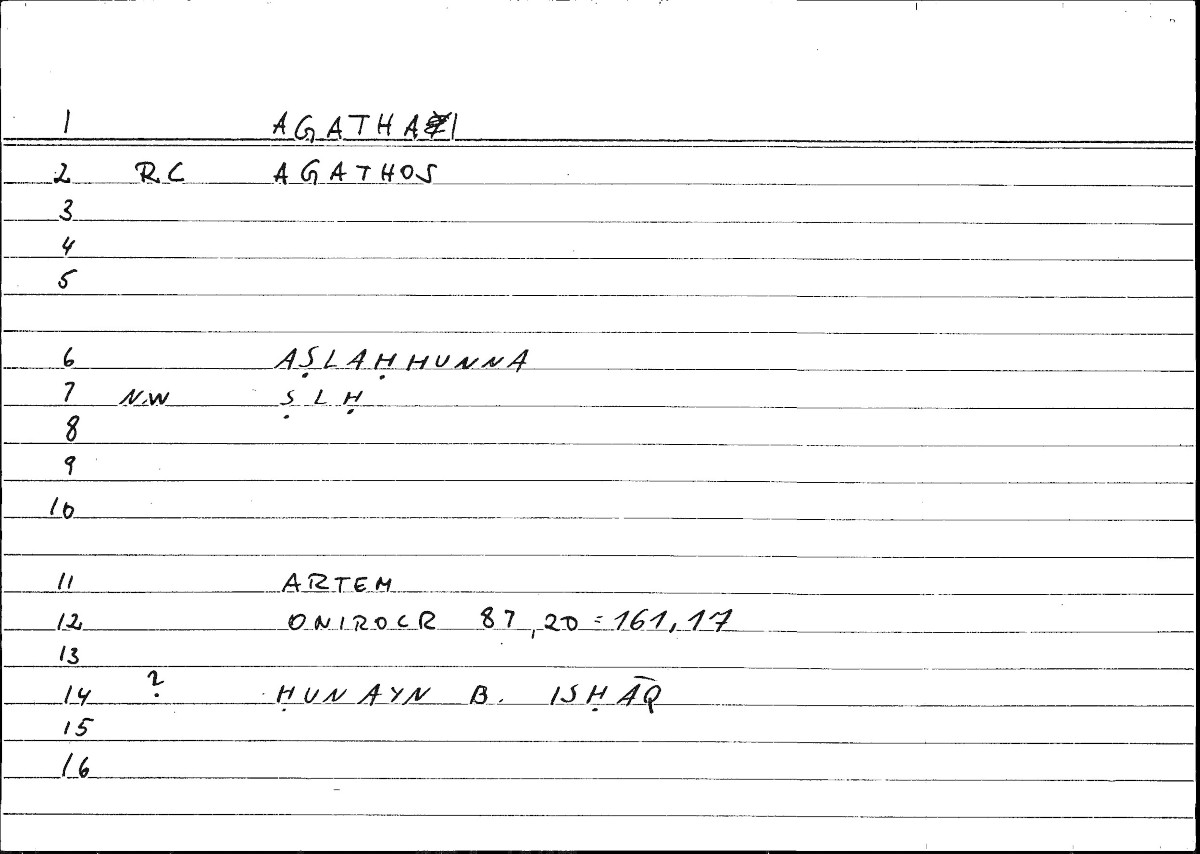 1 AGATHAI
2 RC AGATHOS
3
4
5
6 AṢLAḤHUNNA
7 N.W ṢLḤ
8
9
10
11 ARTEM
12 ONIROCR 87,20=161,17
13
14 ? ḤUNAYN B. ISḤĀQ
15
16